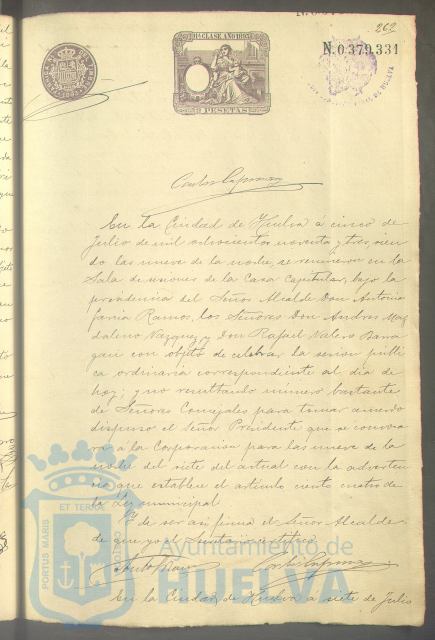 262
11ª CLASE AÑO 1893
N.0.379.331
PESETAS
En la Ciudad de Huelva á cinco de
Julio de mil ochocientos noventa y tres, sien
do las nueve de la noche, se reunieron en la
Sala de sesiones de la Casa Capitular, bajo la
presidencia del Señor Alcalde Don Antonio
García Ramos, los Señores Don Andres Mag
daleno Vazquez y Don Rafael Valero Barra
gan con objeto de celebrar la sesion publi
ca ordinaria correspondiente al dia de
hoy; y no resultando número bastante
de Señores Concejales para tomar acuerdo
dispuso el Señor Presidente que se convoca
ra á la Corporacion para las nueve de la
noche del siete del actual con la adverten
cia que establece el artículo ciento cuatro de
la Ley municipal.
Y de ser asi firma el Señor Alcalde
de que yo el Secretario certifico.
En la Ciudad de Huelva á siete de Julio
PORTUS MARIS ET TERRAE CUSTODIA
Ayuntamiento de
HUELVA